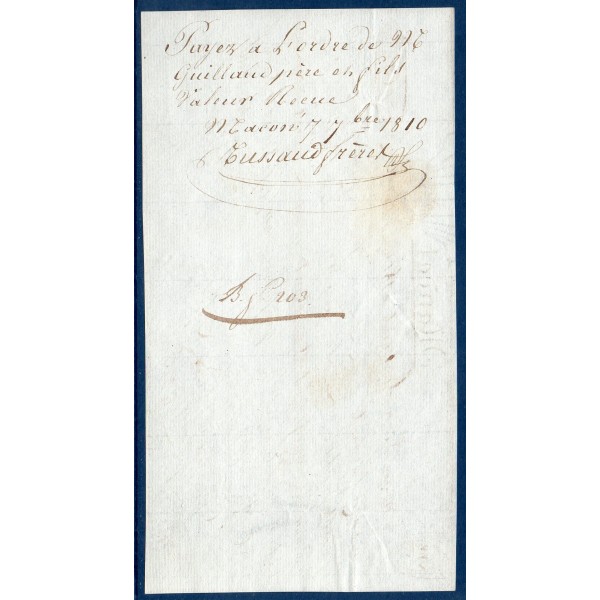 Payez a L'ordre de M
Guilland père et fils
Valeur Recue
Macon 7 7bre 1810
Tussaud frères
B. f. 203.